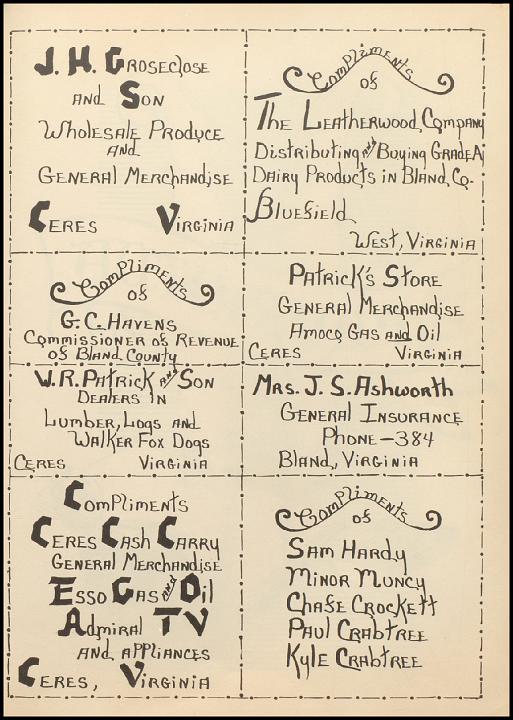 J. H. Groseclose
and Son
Wholesale Produce
and
General Merchandise
Ceres Virginia
Compliments
of
The Leatherwood Company
Distributing and Buying Grade A
Dairy Products in Bland Co.
Bluefield
West, Virginia
Compliments
of
G. C. Havens
Commissioner of Revenue
of Bland County
Patrick's Store
General Merchandise
Amoco Gas and Oil
Ceres Virginia
W. R. Patrick and Son
Dealers in
Lumber, Logs and
Walker Fox Dogs
Ceres Virginia
Mrs. J. S. Ashworth
General Insurance
Phone-384
Bland, Virginia
Compliments
Ceres Cash Carry
General Merchandise
Esso Gas and Oil
Admiral TV
and appliances
Ceres, Virginia
Compliments
of
Sam Hardy
Minor Muncy
Chase Crockett
Paul Crabtree
Kyle Crabtree